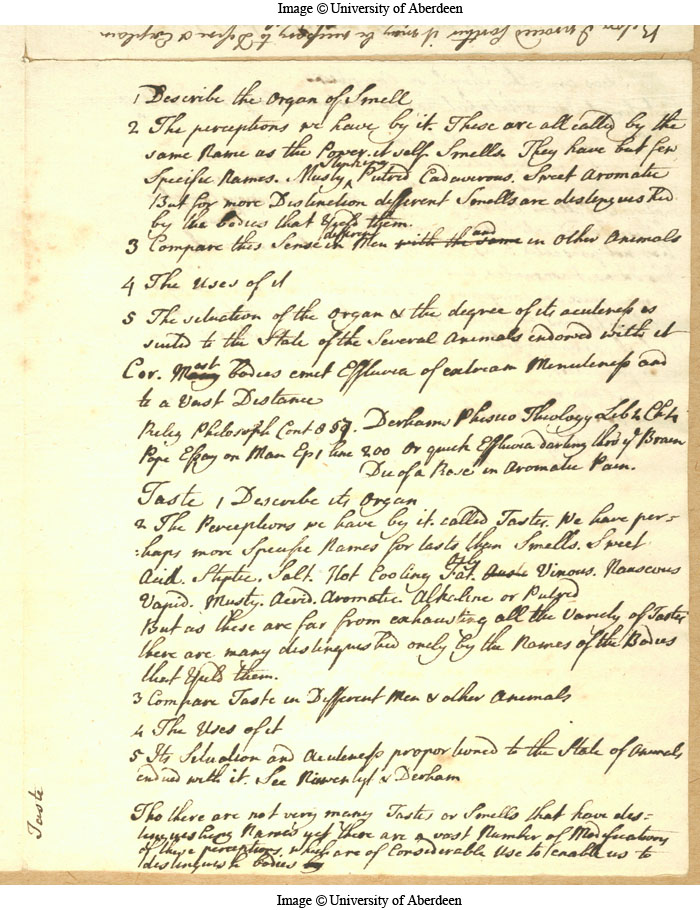 Image © University of Aberdeen
Before I proceed further it may be necessary to Define & Explain
1 Describe the Organ of Smell
2 The perceptions we have by it. These are all called by the
same Name as the Power it self Smells. They have but few
Stinking
Specific Names. Musty ^ Putrid Cadaverous. Sweet Aromatic
But for more Distinction different Smells are distinguished
by the bodies that Yield them.
different and
3 Compare this Sense in Men with the same in Other Animals
4 The Uses of it
5 The situation of the Organ & the degree of its acuteness is
suited to the State of the Several Animals endowed with it
Cor. Most bodies emit Effluvia of extream Minuteness and
to a Vast Distance
Relig Philosoph Cont 859. Derhams Phisico Theology Lib 4 Ch 4
Pope Essay on Man Ep 1 line 200 Or quick Effluvia darting thro' ye Brain
Die of a Rose in Aromatic Pain.
Taste 1 Describe its Organ
2 The Perceptions we have by it. called Tastes. We have per=
=haps more Specific Names for tasts then Smells. Sweet
Oyly
Acid. Stiptic. Salt. Hot Cooling Fat. Vinous. Nauseous
Vapid. Musty. Acrid. Aromatic. Alkaline or Putrid
But as these are far from exhausting all the Variety of Tastes
there are many distinguished only by the Names of the Bodies
that Yield them.
3 Compare Taste in Different Men & other Animals
4 The Uses of it
5 Its Situation and Acuteness proportioned to the State of Animals
endued with it. See Niewentyt & Derham
Taste
Tho there are not very many Tastes or Smells that have dis=
tinguishing Names yet there are a vast Number of Modifications
of these perceptions which are of Considerable Use to enable us to
distinguish bodies by
Image © University of Aberdeen